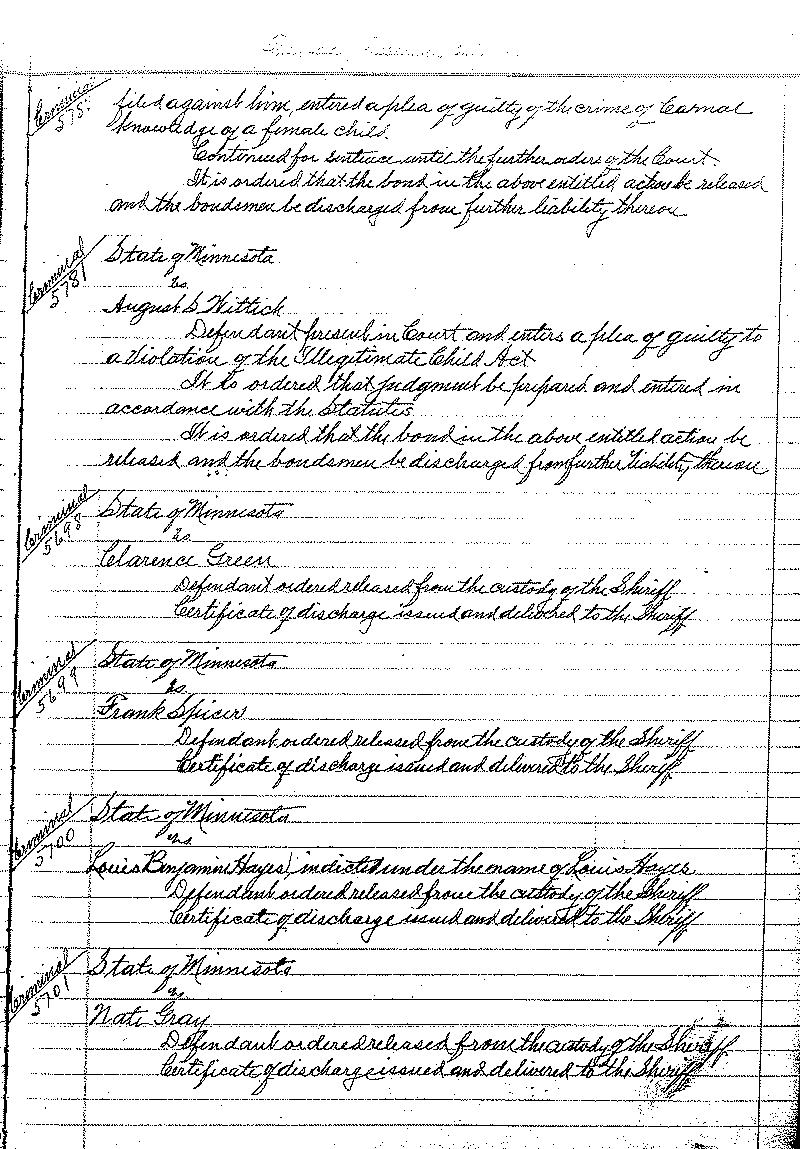 Criminal
575
filed against him, entered a plea of guilty of the crime of Carnal
knowledge of a female child.
Continued for sentence until the further orders of the Court.
It is ordered that the bond in the above entitled action be released
and the bondsmen be discharged from further liability thereon
Criminal
5781
State of Minnesota
vs.
August S Wittick
Defendant present in Court and enters a plea of guilty to
a Violation of the Illegitimate Child Act
It is ordered that judgment be prepared and entered in
accordance with the Statutes
It is ordered that the bond in the above entitled action be
released and the bondsmen be discharged from further liability thereon
Criminal
5698
State of Minnesota
vs.
Clarence Green
Defendant ordered released from the custody of the Sheriff
Certificate of discharge issued and delivered to the Sheriff
Criminal
5699
State of Minnesota
vs.
Frank Spicer
Defendant ordered released from the custody of the Sheriff
Certificate of discharge issued and delivered to the Sheriff
Criminal
5700
State of Minnesota
vs.
Louis Benjamin Hayes, indicted under the name of Louis Hayes
Defendant ordered released from the custody of the Sheriff
Certificate of discharge issued and delivered to the Sheriff
Criminal
5701
State of Minnesota
vs.
Nate Gray
Defendant ordered released from the custody of the Sheriff
Certificate of discharge issued and delivered to the Sheriff